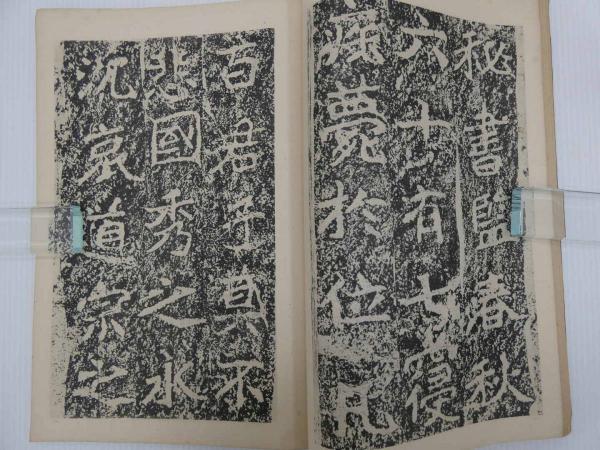 秘書監春秋
六十有七寢
疾薨於位凡
百君子莫不
悲國秀之永
沉哀道宗之